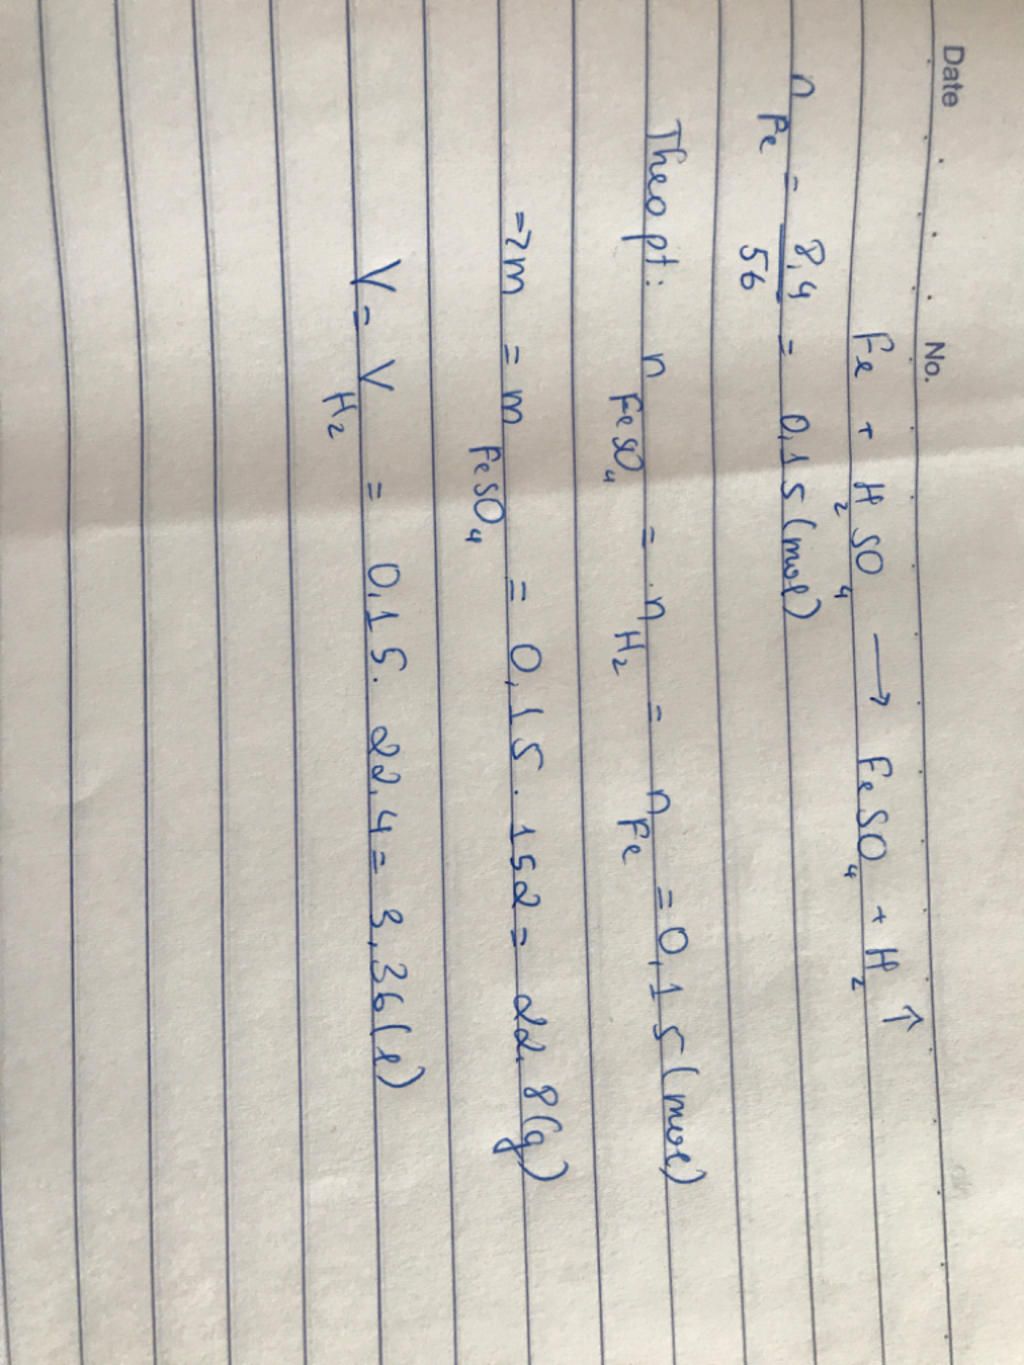 Date No.
Fe + H2SO4 → FeSO4 + H2 ↑
nFe = 8,4/56 = 0,15 (mol)
Theo pt: nFeSO4 = nH2 = nFe = 0,15 (mol)
=> m = mFeSO4 = 0,15 . 152 = 22,8 (g)
V = VH2 = 0,15 . 22,4 = 3,36 (l)